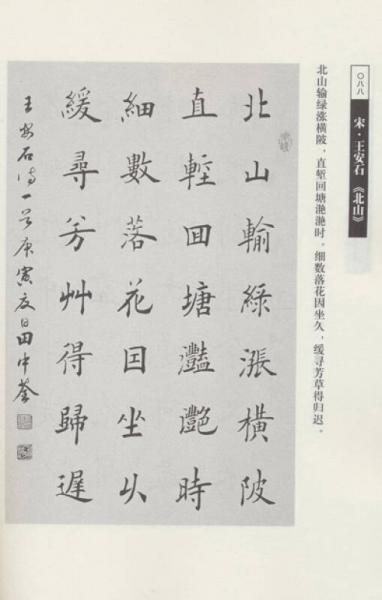 〇八八
宋·王安石《北山》
北山输绿涨横陂，直堑回塘滟滟时。细数落花因坐久，缓寻芳草得归迟。
北山輸綠漲橫陂
直塹回塘灩灧時
細數落花因坐久
緩尋芳艸得歸遲
王安石诗一首庚寅夏日田中荃